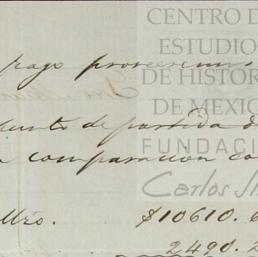 CENTRO D
ESTUDIO
DE HISTOR
DE MEXIC
FUNDACI
Carlos Sli
pago proveernos
de partida d
comparacion co
Mzo. $10610.6
2490.2